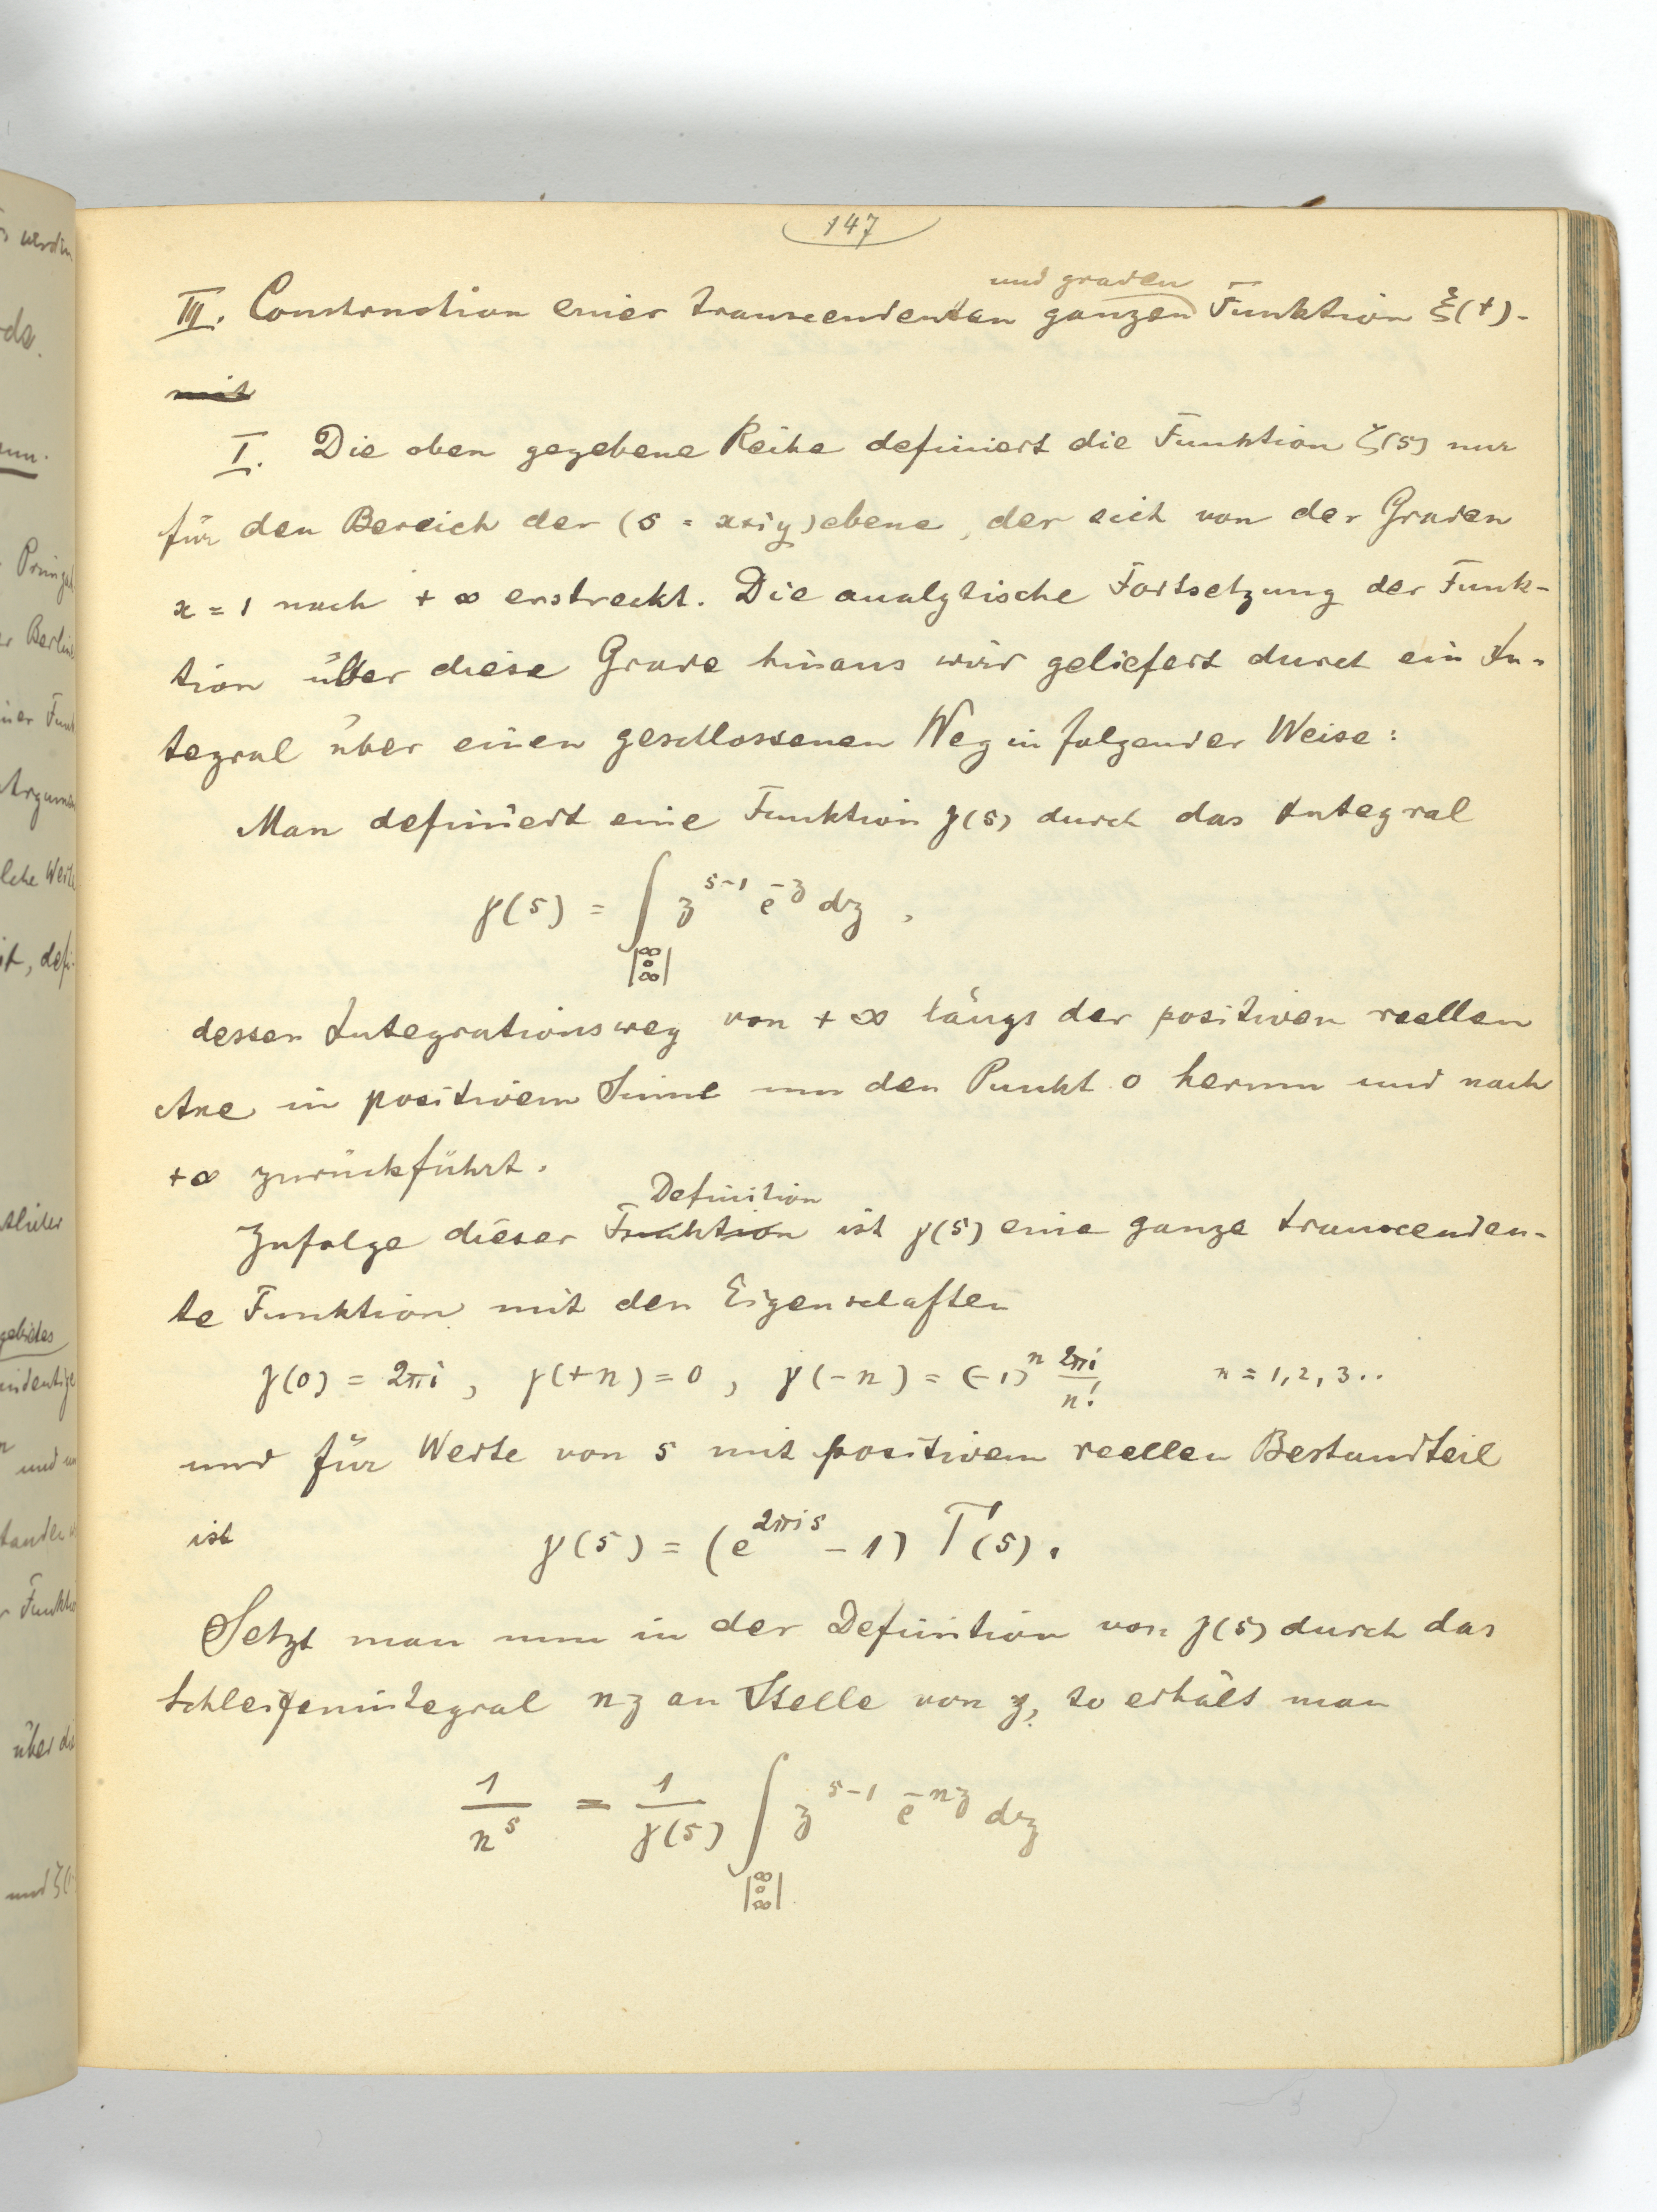 147
III. Construction einer transcendenten ganzen und graden Funktion ξ(t).
mit
I. Die oben gegebene Reihe definiert die Funktion ζ(s) nur
für den Bereich der (s = x+iy) ebene, der sich von der Graden
x = 1 nach + ∞ erstreckt. Die analytische Fortsetzung der Funk-
tion über diese Grade hinaus wird geliefert durch ein In-
tegral über einen geschlossenen Weg in folgender Weise:
Man definiert eine Funktion γ(s) durch das Integral
γ(s) = ∫ z^{s-1} e^{-z} dz ,
|∞ 0 ∞|
dessen Integrationsweg von + ∞ längs der positiven reellen
Axe in positivem Sinne um den Punkt 0 herum und nach
+∞ zurückführt.
Definition
Zufolge dieser Funktion ist γ(s) eine ganze transcenden-
te Funktion mit den Eigenschaften
γ(0) = 2πi , γ(+n) = 0 , γ(-n) = (-1)^n 2πi/n! n = 1, 2, 3..
und für Werte von s mit positivem reellen Bestandteil
ist γ(s) = (e^{2πis} - 1) Γ(s).
Setzt man nun in der Definition von γ(s) durch das
Schleifenintegral nz an Stelle von z, so erhält man
1/n^s = 1/γ(s) ∫ z^{s-1} e^{-nz} dz
|∞ 0 ∞|